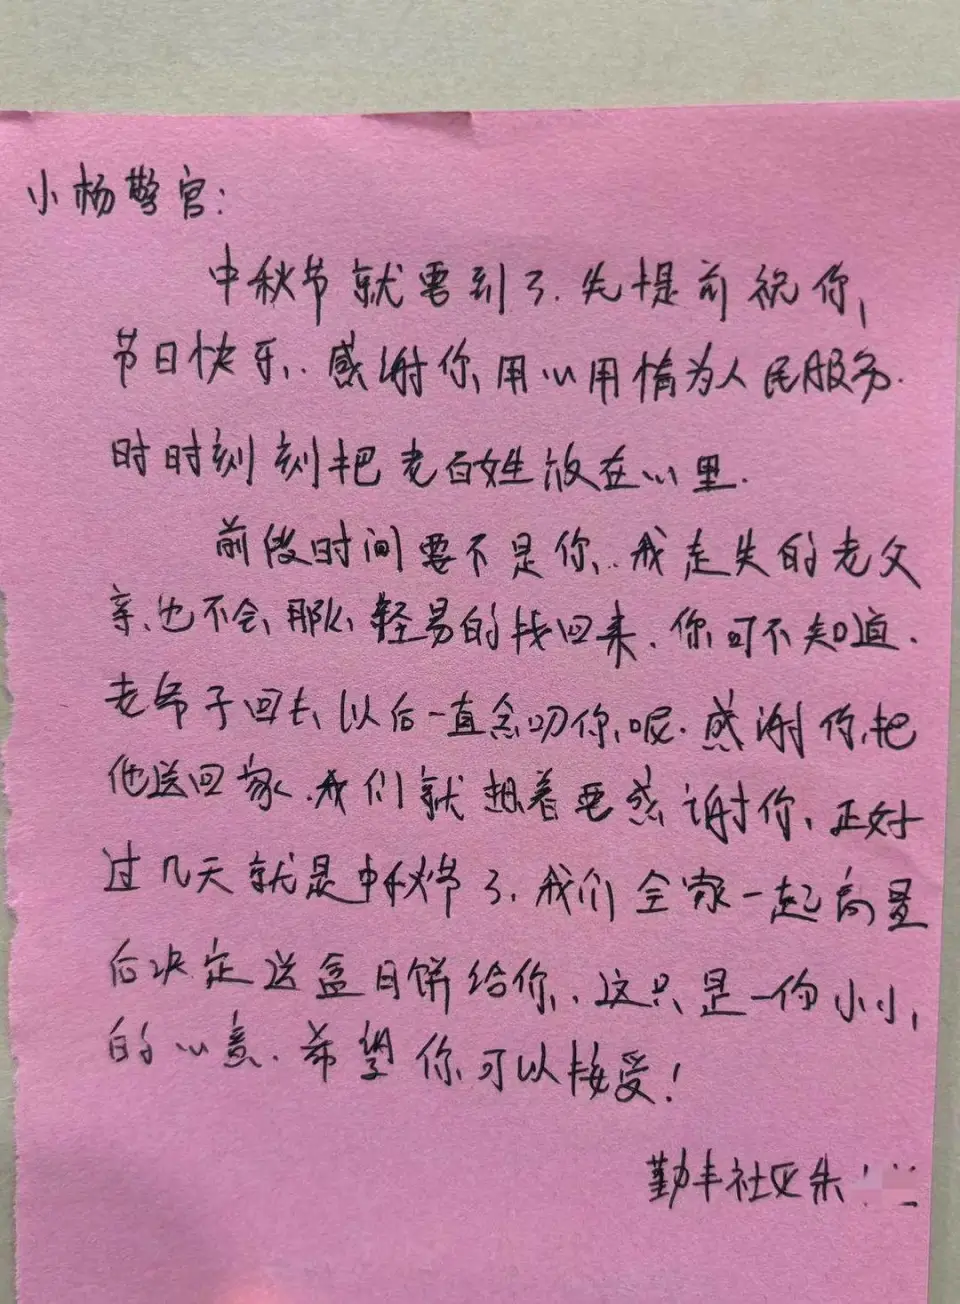 小杨警官:
中秋节就要到了.先提前祝你,
节日快乐.感谢你用心用情为人民服务.
时时刻刻把老百姓放在心里.
前段时间要不是你.我走失的老父
亲也不会那么轻易的找回来.你可不知道.
老爷子回去以后一直念叨你呢.感谢你把
他送回家.我们就想着要感谢你,正好
过几天就是中秋节了.我们全家一起商量
后决定送盒月饼给你.这只是一份小小
的心意.希望你可以接受!
勤丰社区朱